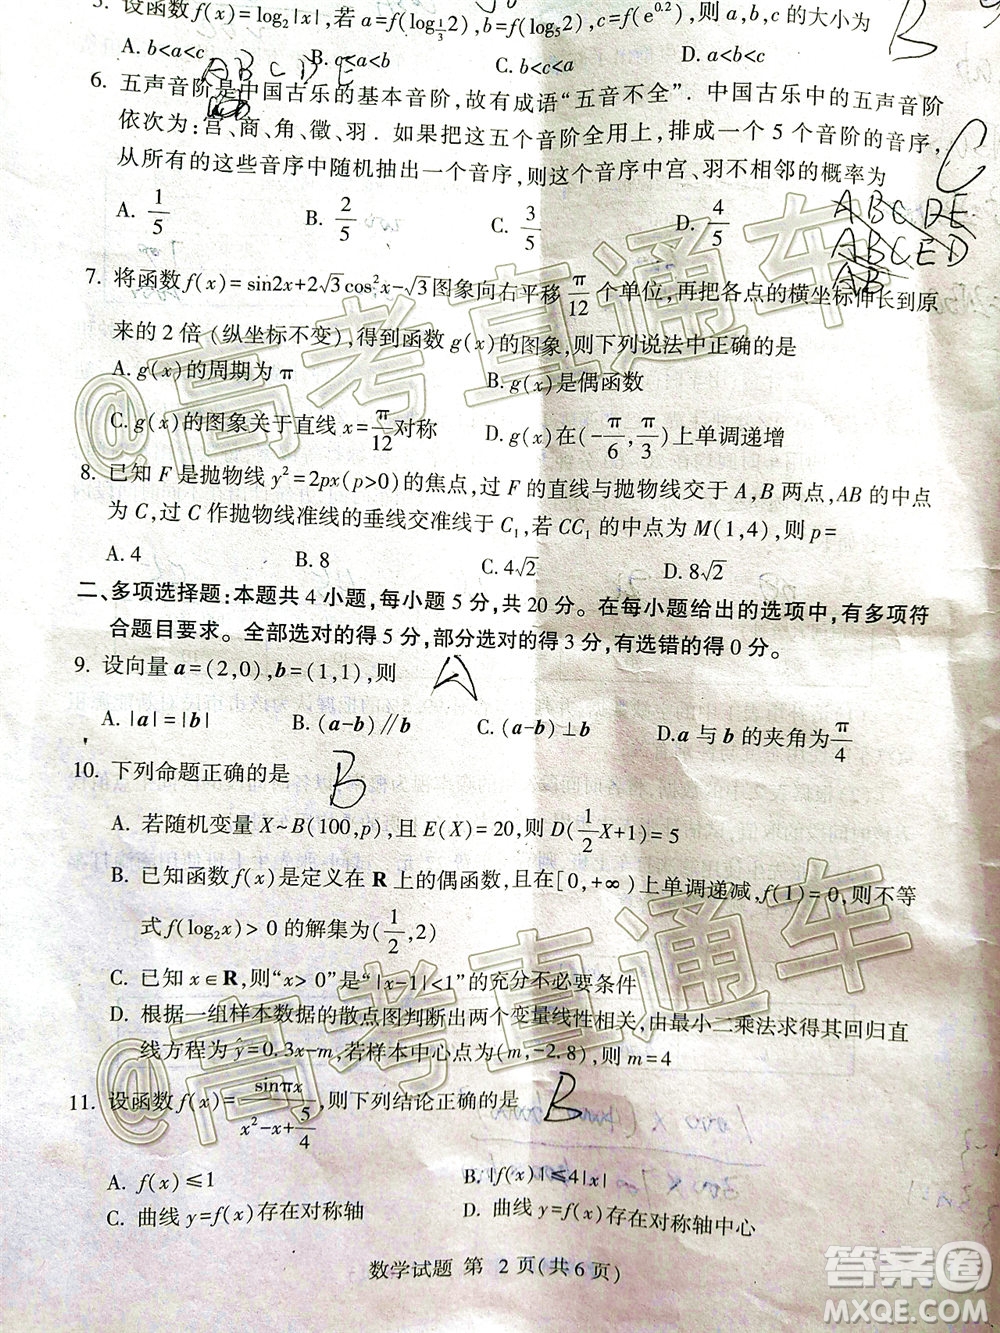 5. 设函数f(x)=log₂|x|,若a=f(log_{1/3}2),b=f(log₅2),c=f(e^{0.2}),则a,b,c的大小为
B
A. b<a<c B. c<b<a C. b<c<a D. a<b<c
A B C D E
6. 五声音阶是中国古乐的基本音阶,故有成语“五音不全”.中国古乐中的五声音阶
依次为:宫、商、角、徵、羽.如果把这五个音阶全用上,排成一个5个音阶的音序,
从所有的这些音序中随机抽出一个音序,则这个音序中宫、羽不相邻的概率为
C
A. 1/5 B. 2/5 C. 3/5 D. 4/5
ABCDE
ABCED
AB
7. 将函数f(x)=sin2x+2√3cos²x-√3图象向右平移π/12个单位,再把各点的横坐标伸长到原
来的2倍(纵坐标不变),得到函数g(x)的图象,则下列说法中正确的是
A. g(x)的周期为π B. g(x)是偶函数
C. g(x)的图象关于直线x=π/12对称 D. g(x)在(-π/6,π/3)上单调递增
8. 已知F是抛物线y²=2px(p>0)的焦点,过F的直线与抛物线交于A,B两点,AB的中点
为C,过C作抛物线准线的垂线交准线于C₁,若CC₁的中点为M(1,4),则p=
A. 4 B. 8 C. 4√2 D. 8√2
二、多项选择题:本题共4小题,每小题5分,共20分。在每小题给出的选项中,有多项符
合题目要求。全部选对的得5分,部分选对的得3分,有选错的得0分。
9. 设向量a=(2,0),b=(1,1),则
A
A. |a|=|b| B. (a-b)∥b C. (a-b)⊥b D. a与b的夹角为π/4
10. 下列命题正确的是
B
A. 若随机变量X~B(100,p),且E(X)=20,则D(1/2X+1)=5
B. 已知函数f(x)是定义在R上的偶函数,且在[0,+∞)上单调递减,f(1)=0,则不等
式f(log₂x)>0的解集为(1/2,2)
C. 已知x∈R,则“x>0”是“|x-1|<1”的充分不必要条件
D. 根据一组样本数据的散点图判断出两个变量线性相关,由最小二乘法求得其回归直
线方程为ŷ=0.3x-m,若样本中心点为(m,-2.8),则m=4
11. 设函数f(x)=sinπx/(x²-x+5/4),则下列结论正确的是
B
A. f(x)≤1 B. |f(x)|≤4|x|
C. 曲线y=f(x)存在对称轴 D. 曲线y=f(x)存在对称轴中心
数学试题 第 2 页(共 6 页)
@高考直通车
@高考直通车
答案圈
MXQE.COM